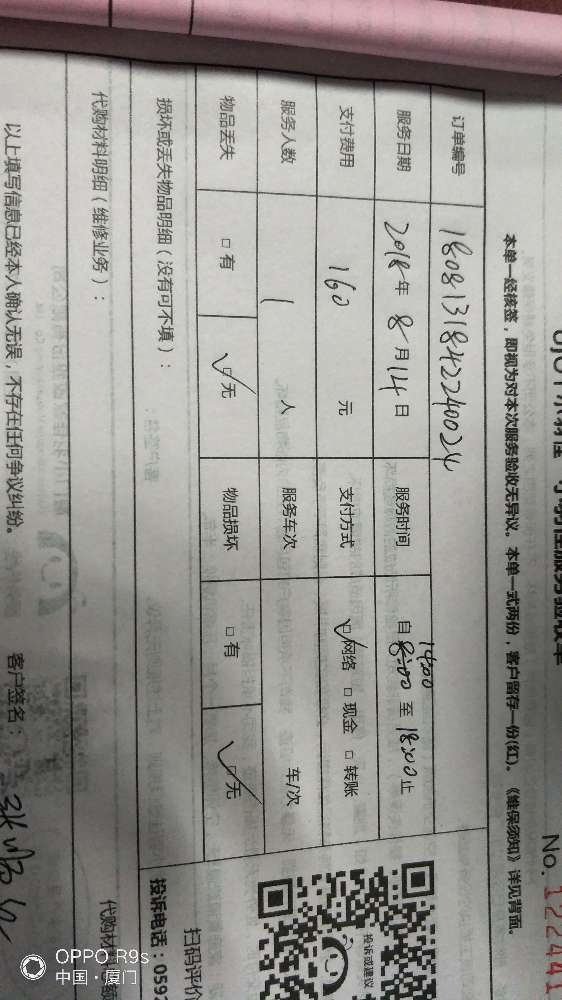 服务验收单
No. 122441
本单一经核签，即视为对本次服务验收无异议。本单一式两份，客户留存一份(红)。《维保须知》详见背面。
订单编号 1808131842240024
服务日期 2018年 8月14日 服务时间 自 14:00 8:00 至 18:00 止
支付费用 160 元 支付方式 ☑网络 □现金 □转账
服务人数 1 人 服务车次 车/次
物品丢失 □有 ☑无 物品损坏 □有 ☑无
损坏或丢失物品明细（没有可不填）：
投诉或建议
扫码评价
投诉电话：059
代购材料明细（维修业务）：
代购材
以上填写信息已经本人确认无误，不存在任何争议纠纷。 客户签名：
OPPO R9s
中国·厦门